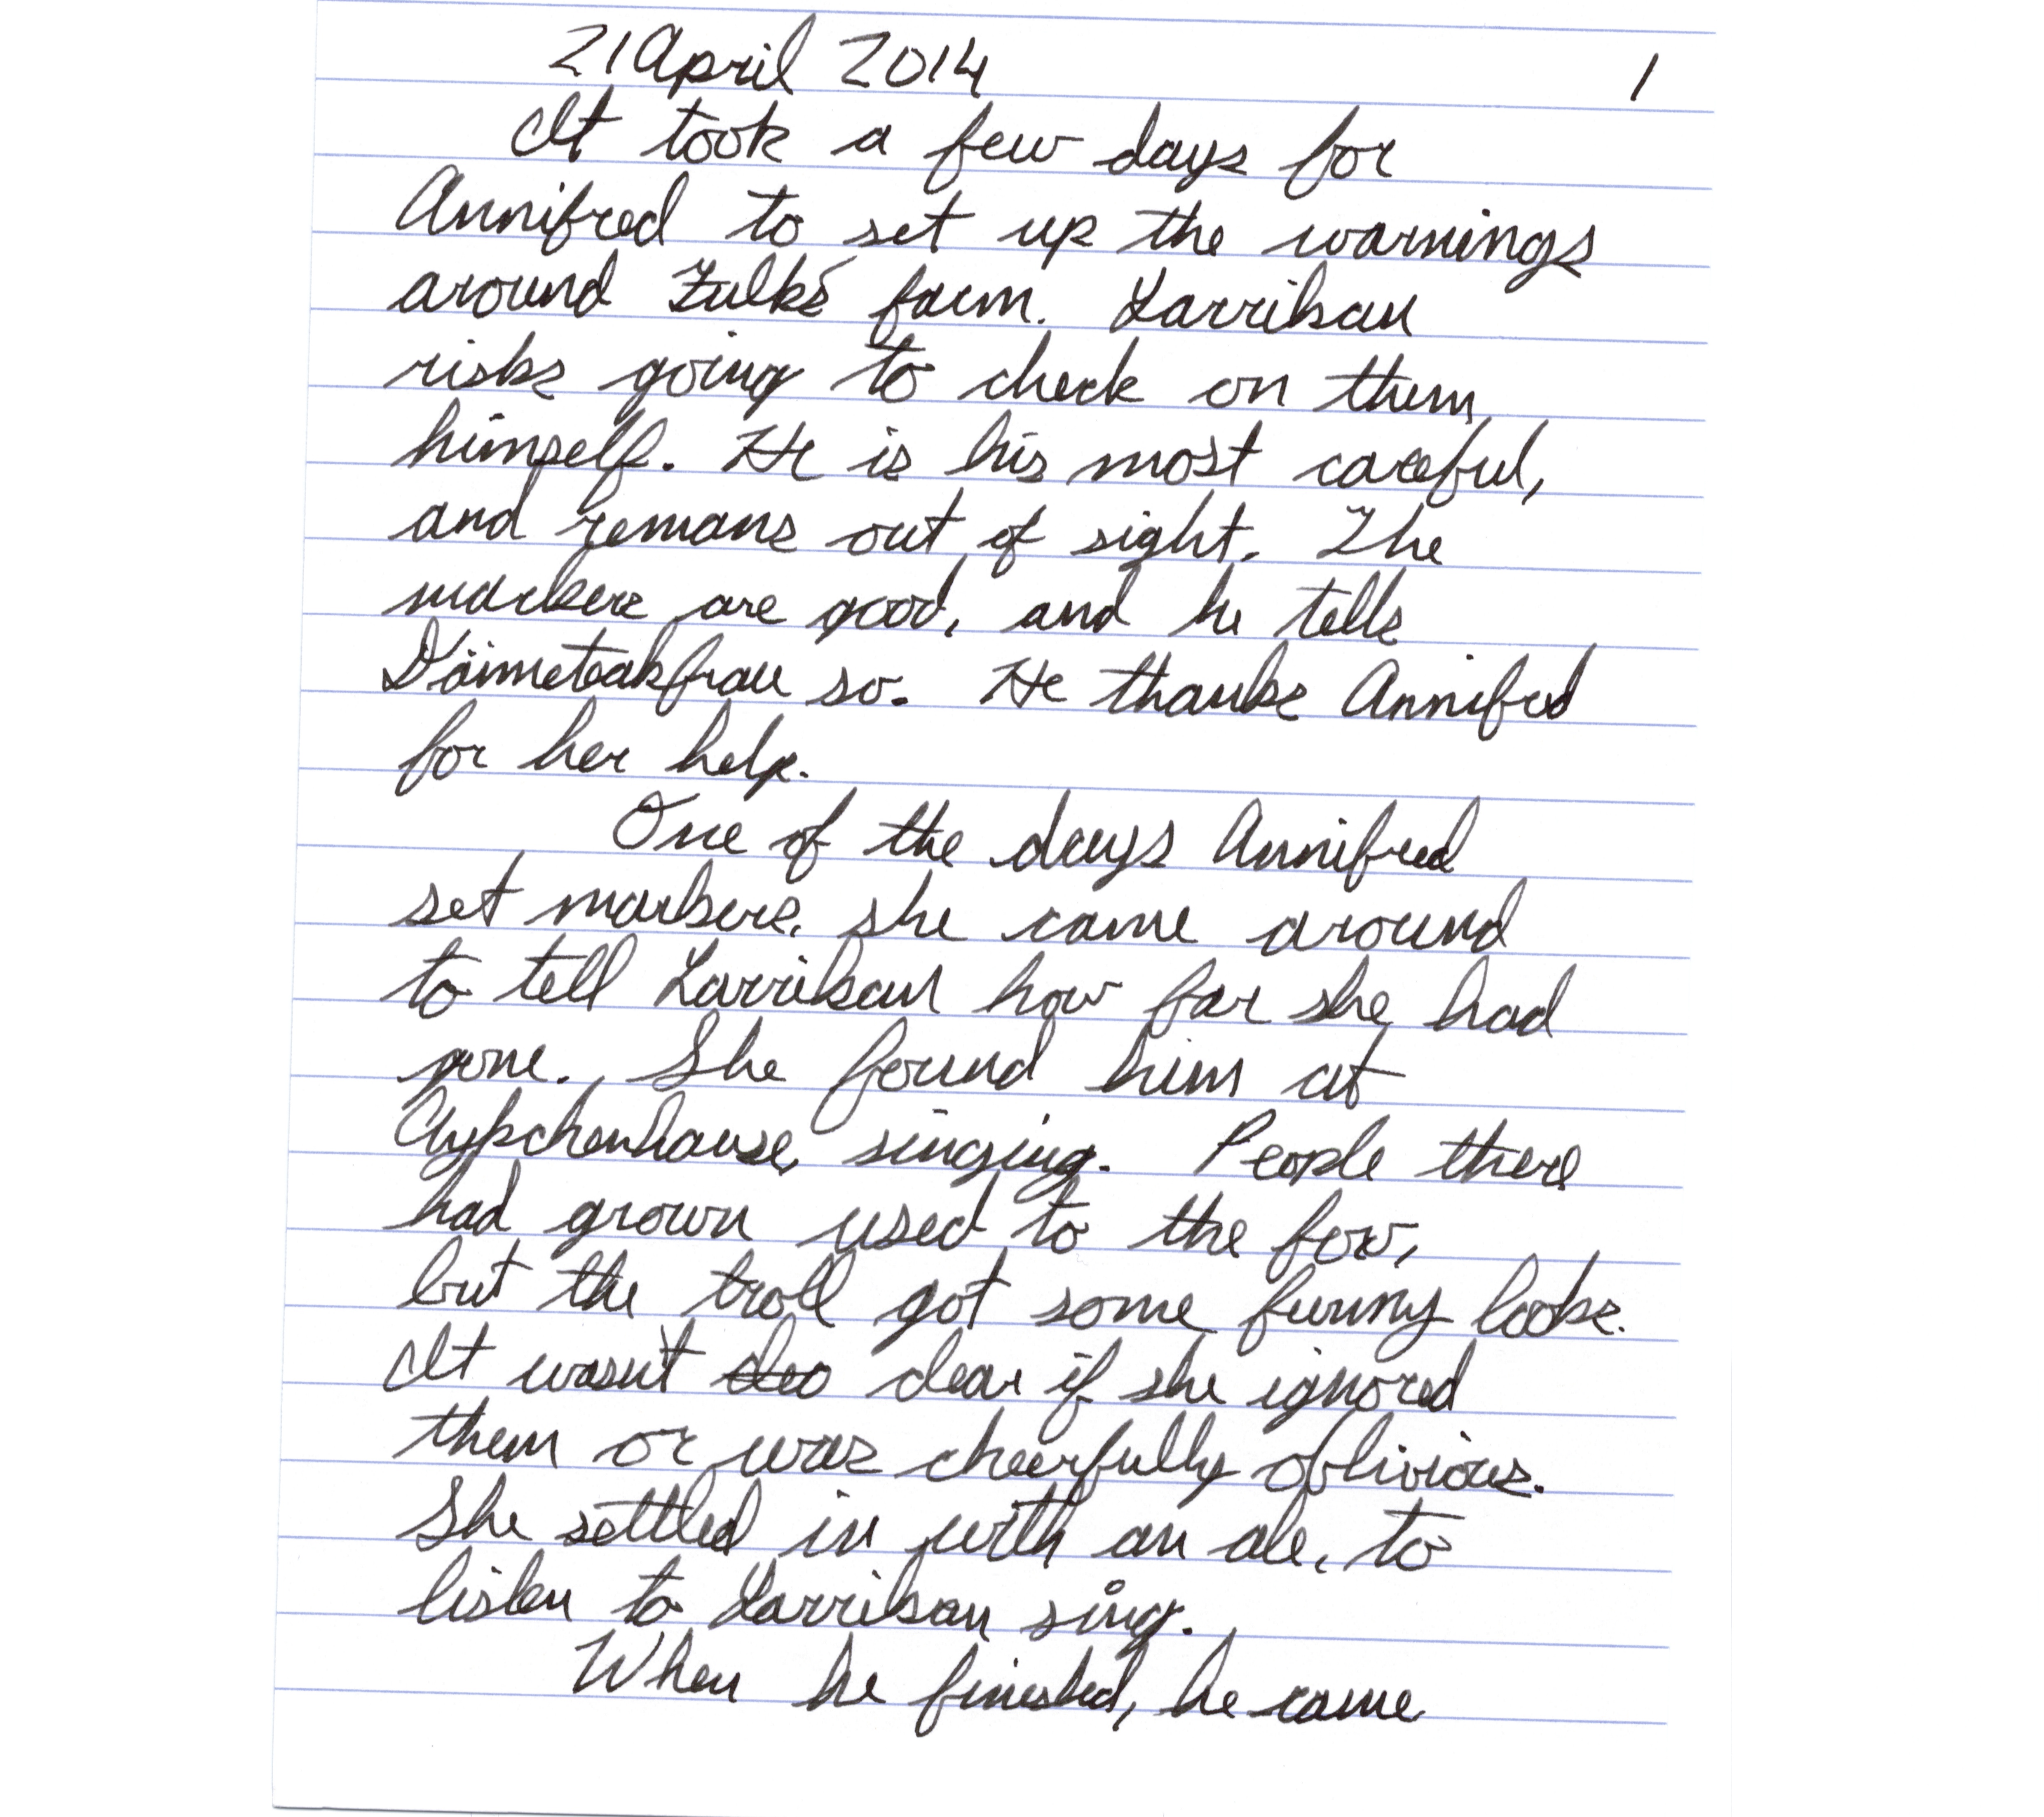 21 April 2014 1
It took a few days for
Annifred to set up the warnings
around Zulke's farm. Larrikan
risks going to check on them
himself. He is his most careful,
and remans out of sight. The
markers are good, and he tells
so. He thanks Annifred
for her help.
One of the days Annifred
set markers, she came around
to tell Larrikan how far she had
gone. She found him at
singing. People there
had grown used to the fox,
but the troll got some funny looks.
It wasn't clear if she ignored
them or was cheerfully oblivious.
She settled in with an ale, to
listen to Larrikan sing.
When he finished, he came